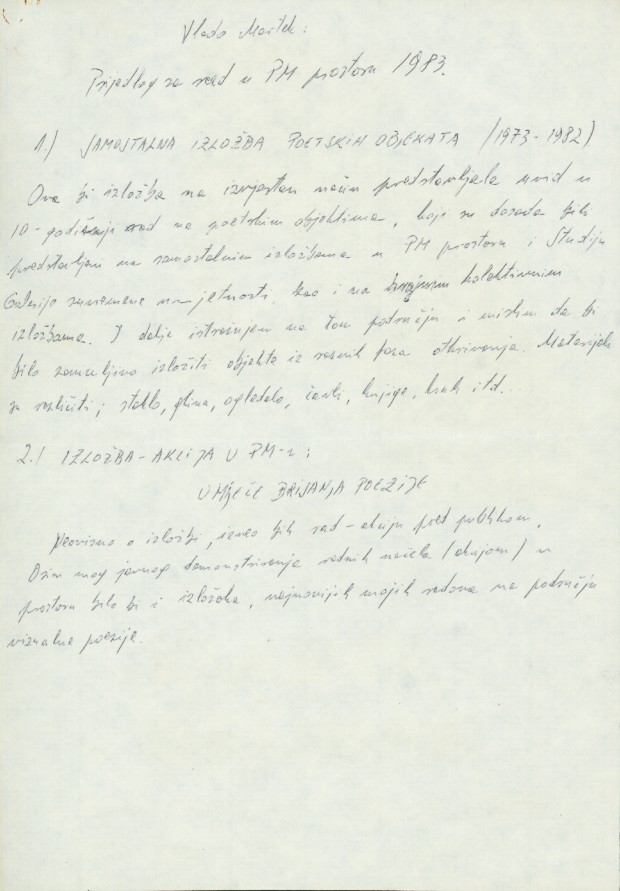 Vlado Martek:
Prijedlog za rad u PM prostoru 1983.
1.) SAMOSTALNA IZLOŽBA POETSKIH OBJEKATA (1973-1982)
Ova bi izložba na izvjestan način predstavljala uvid u
10-godišnji rad na poetskim objektima, koji su dosada bili
predstavljeni na samostalnim izložbama u PM prostoru i Studiju
Galerije suvremene umjetnosti, kao i na brojnim kolektivnim
izložbama. I dalje istražujem na tom području i mislim da bi
bilo zanimljivo izložiti objekte iz raznih faza otkrivanja. Materijali
su različiti; staklo, glina, ogledalo, čavli, knjige, kruh itd...
2.) IZLOŽBA-AKCIJA U PM-u;
UMIJEĆE BRIJANJA POEZIJE
Neovisno o izložbi, izveo bih rad-akciju pred publikom.
Osim mog javnog demonstriranja radnih načela (akcijom) u
prostoru bilo bi i izložaka, najnovijih mojih radova na području
vizualne poezije.